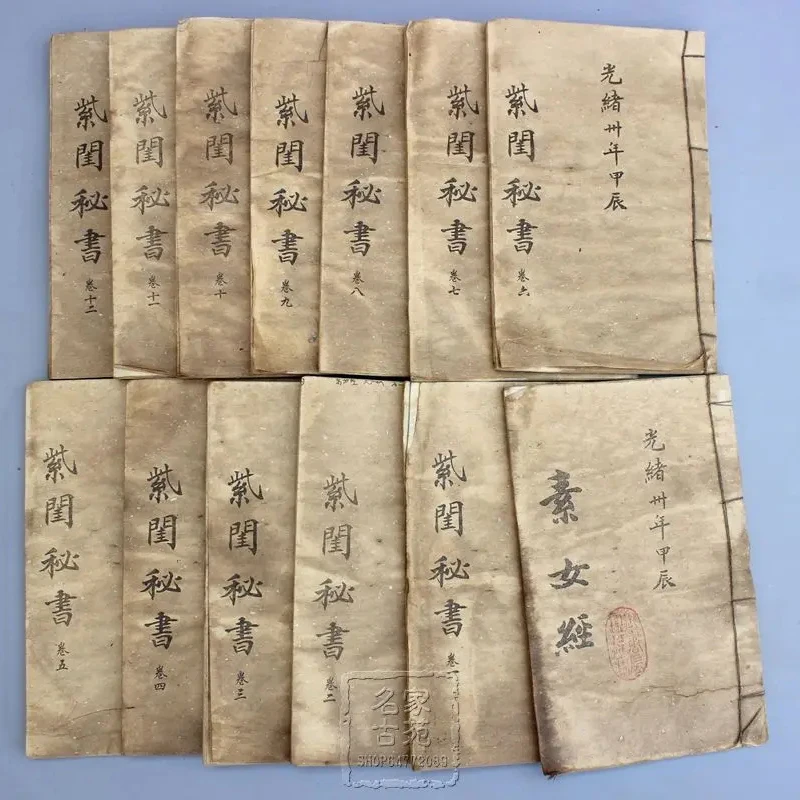 光緒卅年甲辰
紫閨秘書 卷六
紫閨秘書 卷七
紫閨秘書 卷八
紫閨秘書 卷九
紫閨秘書 卷十
紫閨秘書 卷十一
紫閨秘書 卷十二
光緒卅年甲辰
素女經
紫閨秘書 卷一
紫閨秘書 卷二
紫閨秘書 卷三
紫閨秘書 卷四
紫閨秘書 卷五
名家
古苑
SHOP64772089